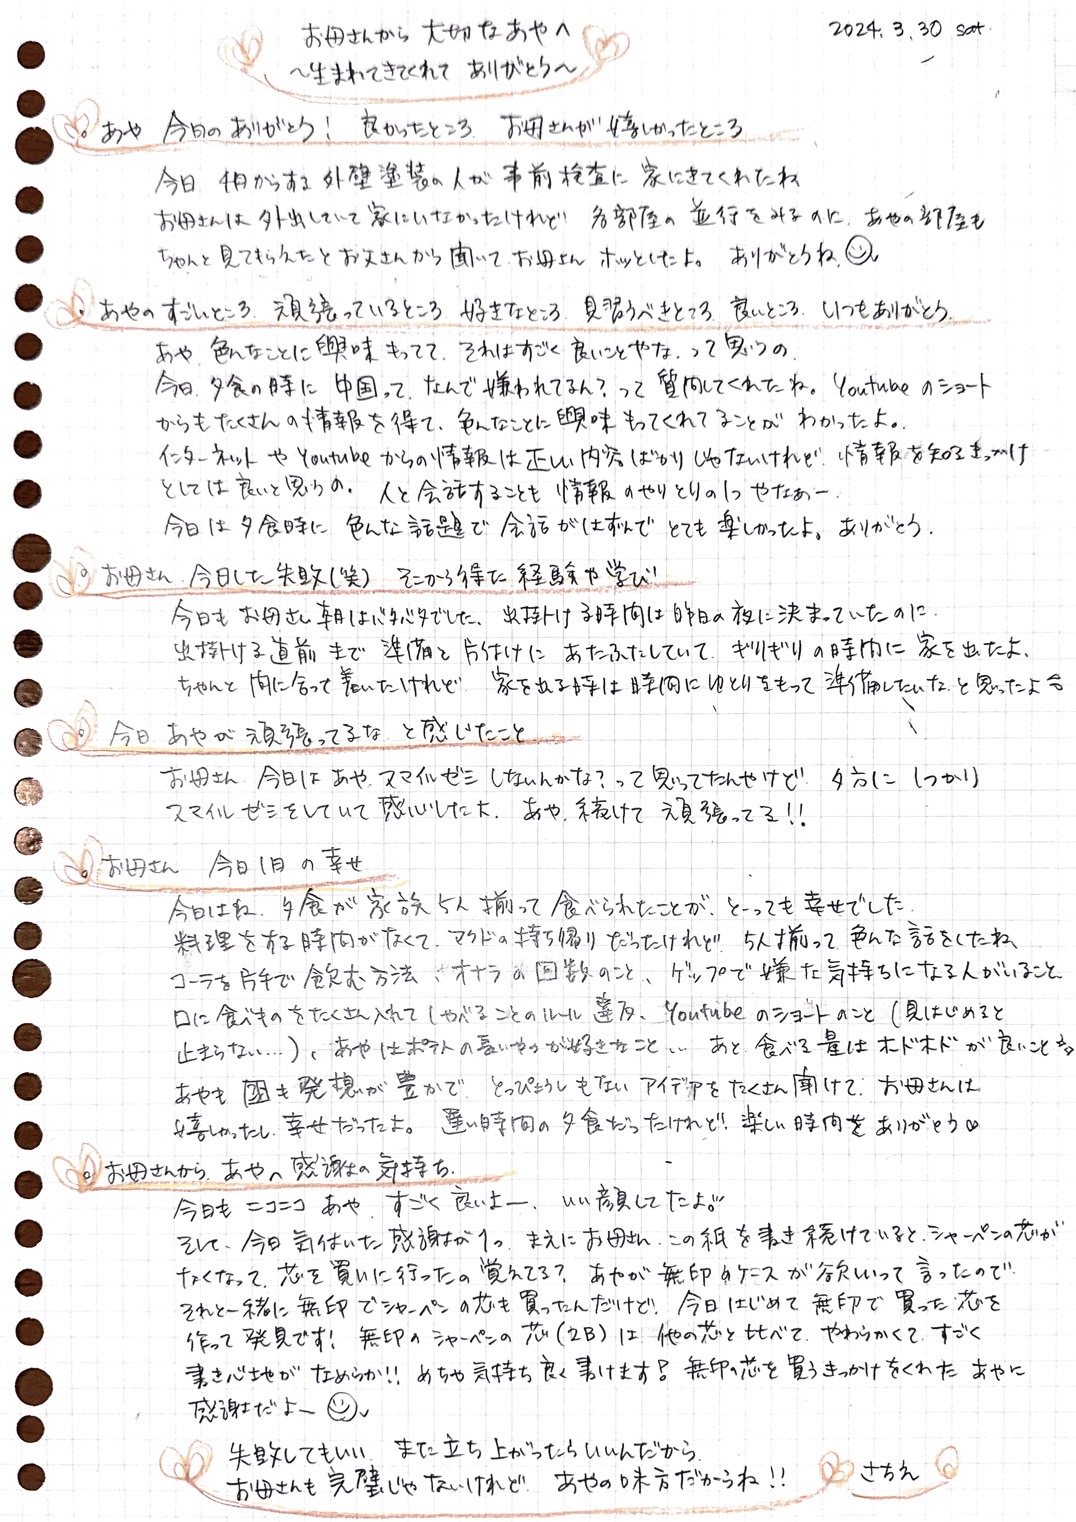 2024.3.30 sat.
お母さんから 大切なあやへ
〜生まれてきてくれて ありがとう〜
。あや 今日のありがとう! 良かったところ お母さんが嬉しかったところ
今日 4月からする外壁塗装の人が事前検査に家にきてくれたね
お母さんは外出していて家にいなかったけれど 各部屋の並行をみるのに、あやの部屋も
ちゃんと見てもらえたとお父さんから聞いて お母さん ホッとしたよ。 ありがとうね
。あやのすごいところ 頑張っているところ 好きなところ 見習うべきところ 良いところ いつもありがとう
あや 色んなことに興味もってて、それはすごく良いことやな、って思うの
今日、夕食の時に 中国って なんで嫌われてるん? って質問してくれたね。Youtubeのショート
からもたくさんの情報を得て、色んなことに興味もってくれてることが わかったよ。
インターネットやYoutubeからの情報は正しい内容ばかりじゃないけれど 情報を知るきっかけ
としては良いと思うの。 人と会話することも 情報のやりとりの1つやなぁー
今日は夕食時に色んな話題で会話がはずんでとても楽しかったよ。ありがとう。
。お母さん 今日した失敗(笑) そこから得た経験や学び
今日もお母さん朝はバタバタでした、出掛ける時間は昨日の夜に決まっていたのに
出掛ける直前まで準備と片付けに あたふたしていて ぎりぎりの時間に家を出たよ、
ちゃんと間に合って着いたけれど 家を出る時は時間にゆとりをもって準備したいなと思ったよ
。今日 あやが頑張ってるな と感じたこと
お母さん 今日はあや スマイルゼミしないんかな? って思ってたんやけど 夕方にしっかり
スマイルゼミをしていて感心したよ、あや、続けて 頑張ってる!!
。お母さん 今日1日の幸せ
今日はね、夕食が家族5人揃って食べられたことが、とーっても幸せでした
料理をする時間がなくて、マクドの持ち帰りだったけれど 5人揃って色んな話をしたね、
コーラを片手で飲む方法、オナラの回数のこと、ゲップで嫌な気持ちになる人がいること
口に食べものをたくさん入れてしゃべることのルール違反、Youtubeのショートのこと(見はじめると
止まらない…)、あやはポテトの長いやつが好きなこと… あと食べる量はホドホドが良いこと
あやも 発想が豊かで とっぴょうしもないアイデアをたくさん聞けて、お母さんは
嬉しかったし 幸せだったよ。 遅い時間の夕食だったけれど 楽しい時間をありがとう♡
。お母さんから あやへ感謝の気持ち
今日もニコニコあや すごく良いよー、いい顔してたよ。
そして、今日気付いた感謝が1つ まえにお母さん この紙を書き続けていると、シャーペンの芯が
なくなって、芯を買いに行ったの覚えてる? あやが無印のケースが欲しいって言ったので
それと一緒に無印でシャーペンの芯も買ったんだけど 今日はじめて無印で買った芯を
作って発見です! 無印のシャーペンの芯(2B)は他の芯と比べて やわらかくて すごく
書き心地がなめらか!! めちゃ気持ち良く書けます 無印の芯を買うきっかけをくれたあやに
感謝だよー
失敗してもいい また立ち上がったらいいんだから
お母さんも完璧じゃないけれど あやの味方だからね!! さちえ